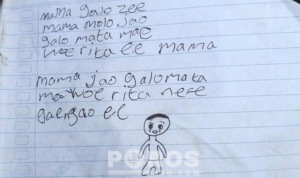 mama galo zee
mama molo jao
galo mata mae
woe rita ee mama
mama jao galo mata
ma woe rita nefe
gaengao ee